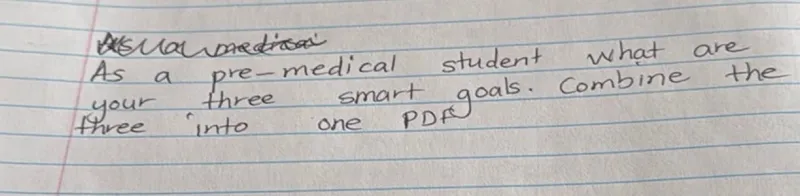 As a pre-medical student what are
your three smart goals. Combine the
three into one PDF